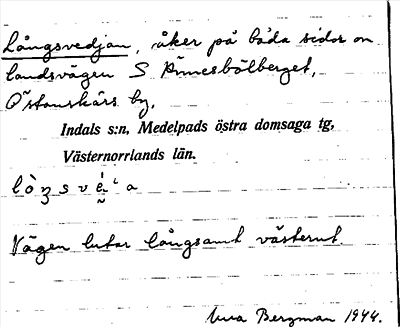 Långsvedjan, åker på båda sidor om
landsvägen S Finnesbölberget,
Östanskärs by,
Indals s:n, Medelpads östra domsaga tg,
Västernorrlands län.
Vägen lutar långsamt västerut.
Bergman 1944.